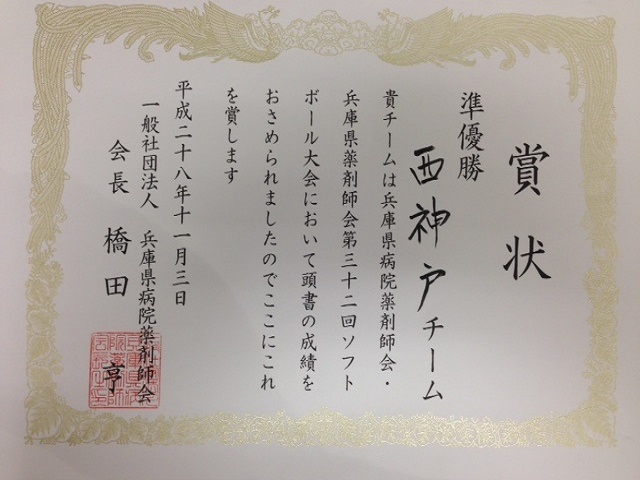 賞状
準優勝
西神戸チーム
貴チームは兵庫県病院薬剤師会・
兵庫県薬剤師会第三十二回ソフト
ボール大会において頭書の成績を
おさめられましたのでここにこれ
を賞します
平成二十八年十一月三日
一般社団法人 兵庫県病院薬剤師会
会長 橋田 亨